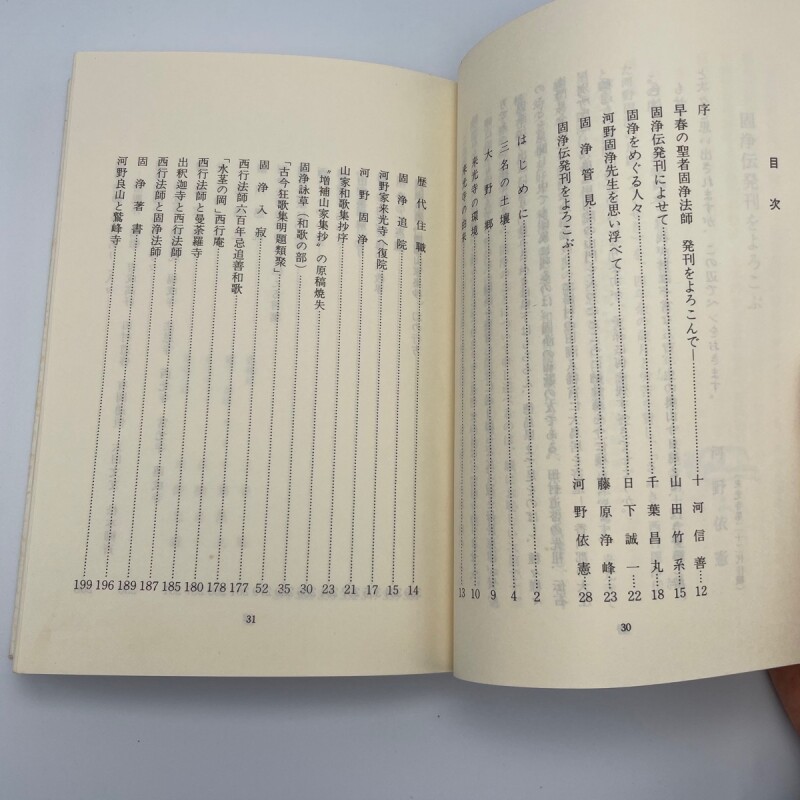 目次
序 十河信善…12
早春の聖者固浄法師 発刊をよろこんで―…山田竹系…15
固浄伝発刊によせて…千葉昌丸…18
固浄をめぐる人々…日下誠一…22
河野固浄先生を思い浮べて…藤原浄峰…23
固浄管見…河野依憲…28
固浄伝発刊をよろこぶ
はじめに…2
三名の土壌…4
大野郷…9
来光寺の環境…10
来光寺の由来…13
30
歴代住職…14
固浄道院…15
河野家来光寺へ復院…17
河野固浄…21
山家和歌集抄序…23
〝増補山家集抄〟の原稿焼失…30
固浄詠草（和歌の部）…35
「古今狂歌集明題類聚」…52
固浄入寂…177
西行法師六百年忌追善和歌…178
「水茎の岡」西行庵…180
西行法師と曼荼羅寺…185
出釈迦寺と西行法師…187
西行法師と固浄法師…189
固浄著書…196
河野良山と鷲峰寺…199
31